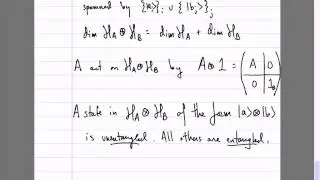 spanned by {|a⟩}ᵢ ∪ {|b;⟩}ⱼ
dim H_A ⊗ H_B = dim H_A + dim H_B
A act on H_A ⊗ H_B by A ⊗ 1 = ( A 0
0 1_B )
A state in H_A ⊗ H_B of the form |a⟩ ⊗ |b⟩
is unentangled. All others are entangled.